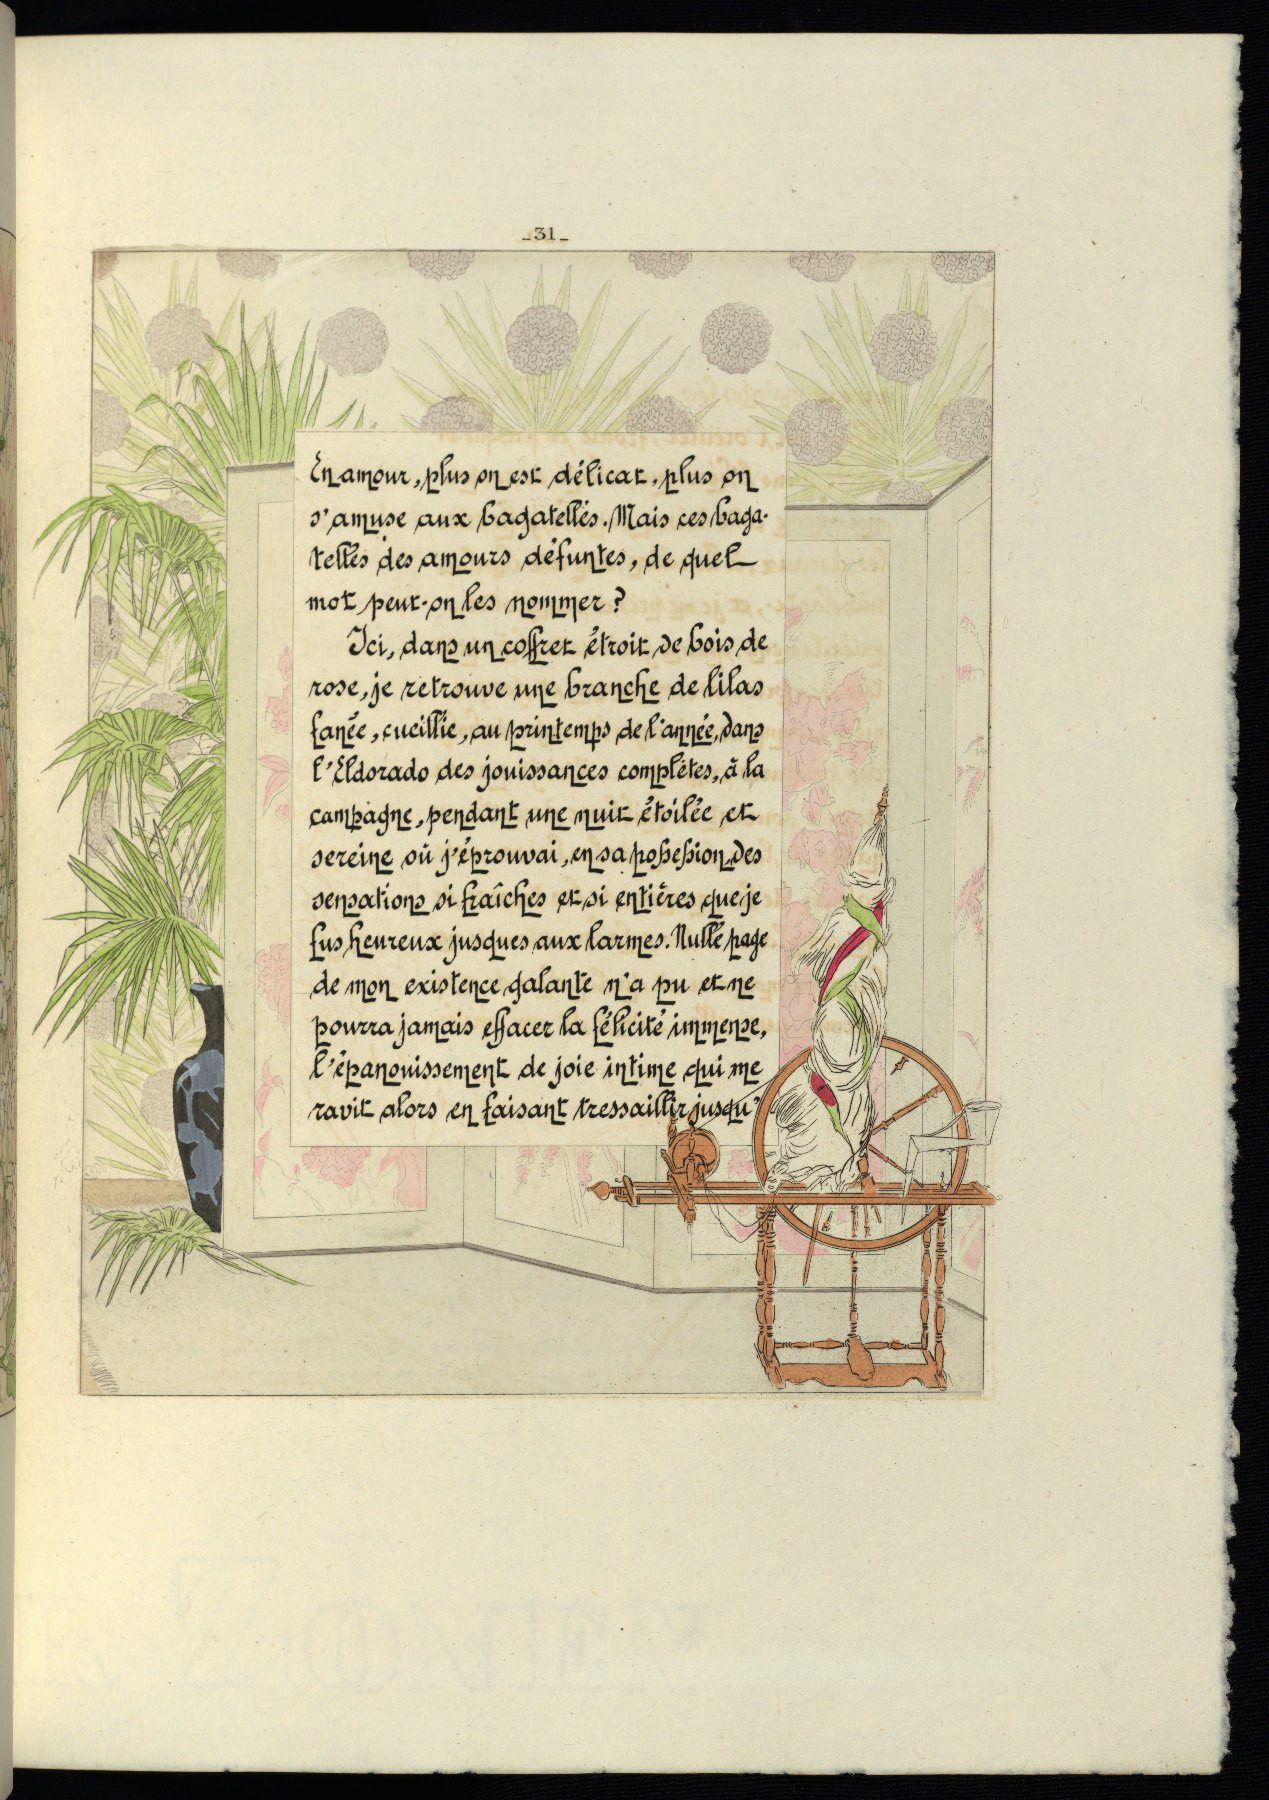 _31_
En amour, plus on est délicat, plus on
s'amuse aux bagatelles. Mais ces baga-
telles des amours défuntes, de quel
mot peut-on les nommer ?
Ici, dans un coffret étroit de bois de
rose, je retrouve une branche de lilas
fanée, cueillie, au printemps de l'année, dans
l'Eldorado des jouissances complètes, à la
campagne, pendant une nuit étoilée et
sereine où j'éprouvai, en sa possession, des
sensations si fraîches et si entières que je
fus heureux jusques aux larmes. Nulle page
de mon existence galante n'a pu et ne
pourra jamais effacer la félicité immense,
l'épanouissement de joie intime qui me
ravit alors en faisant tressaillir jusqu'